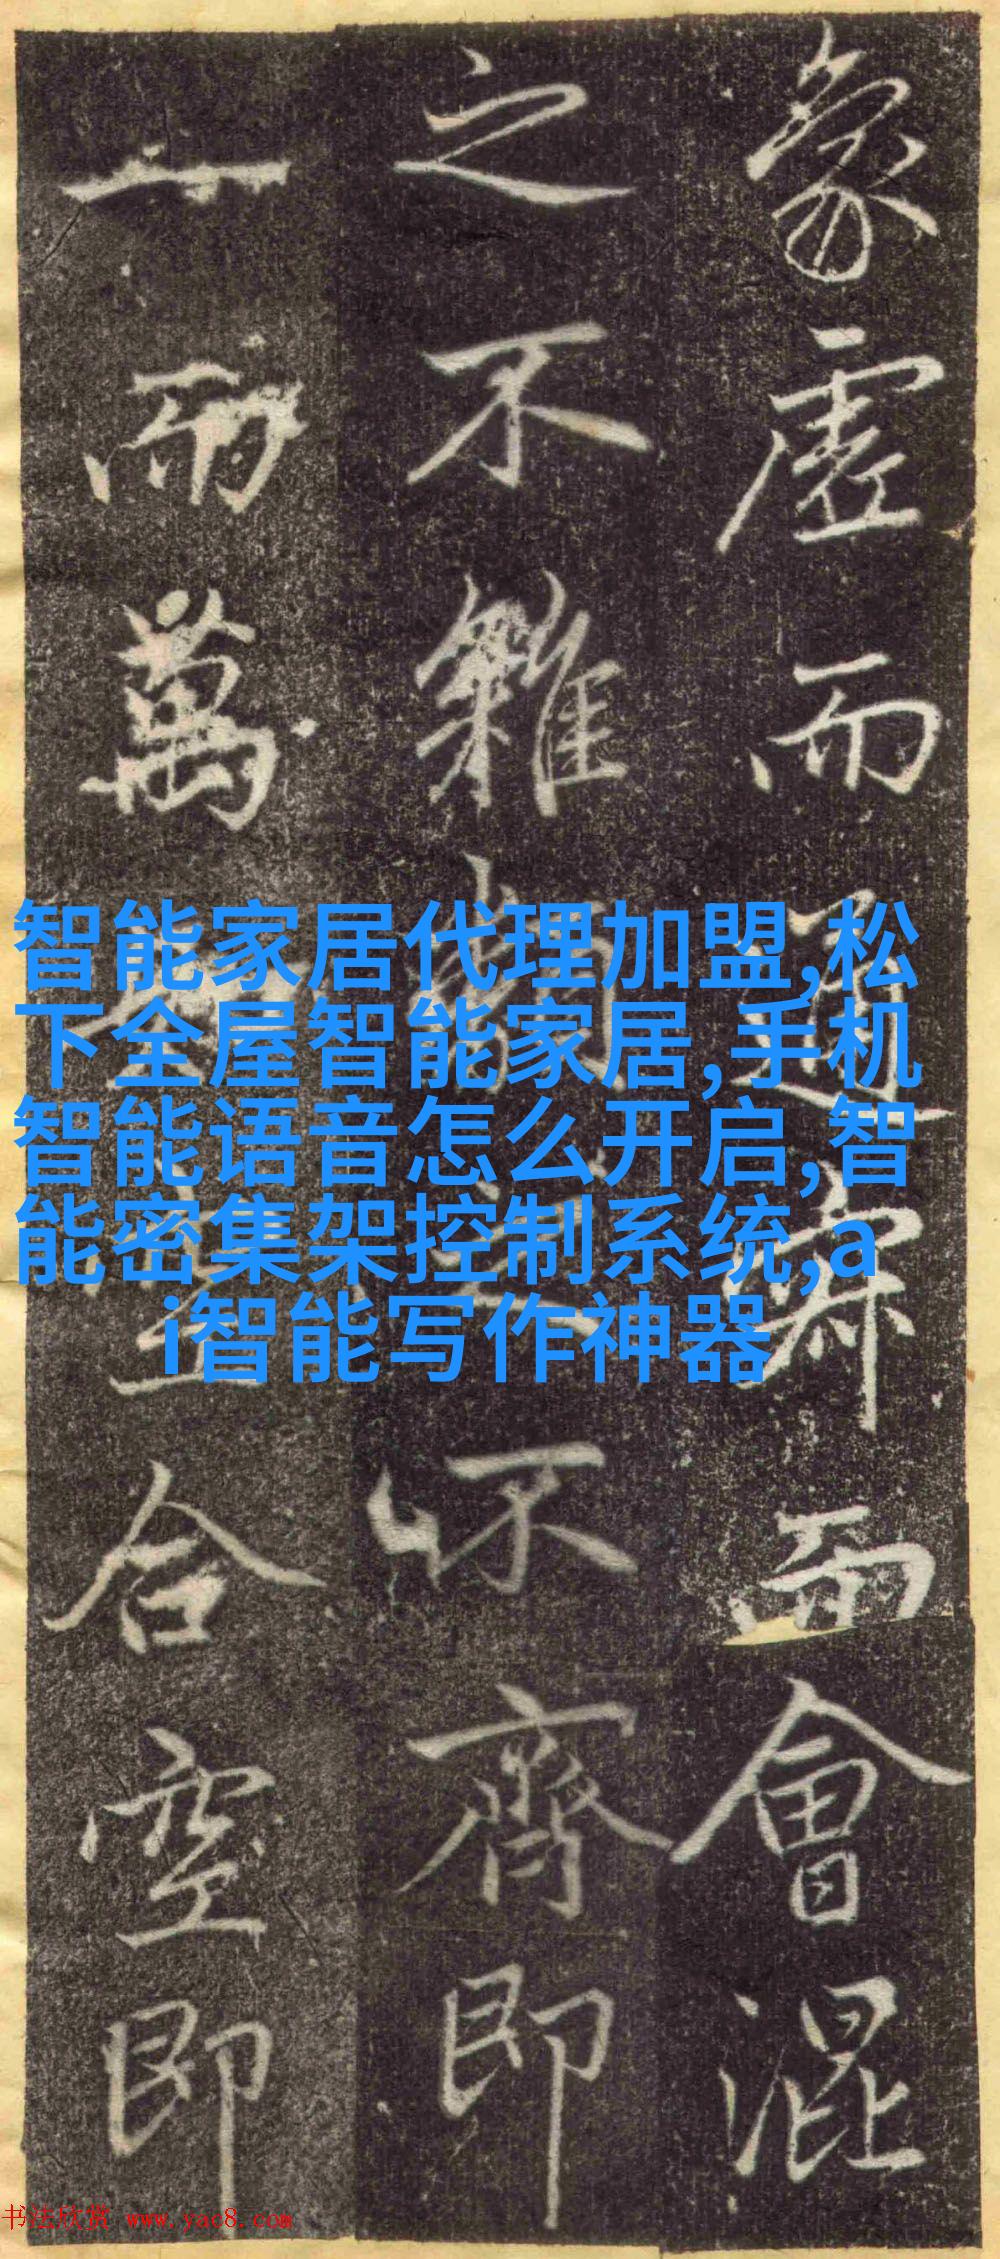 象虛而通而會混
之不雜不齊即
一而萬合空即
智能家居代理加盟,松
下全屋智能家居,手机
智能语音怎么开启,智
能密集架控制系统,a
i智能写作神器
书法欣赏 www.yac8.com